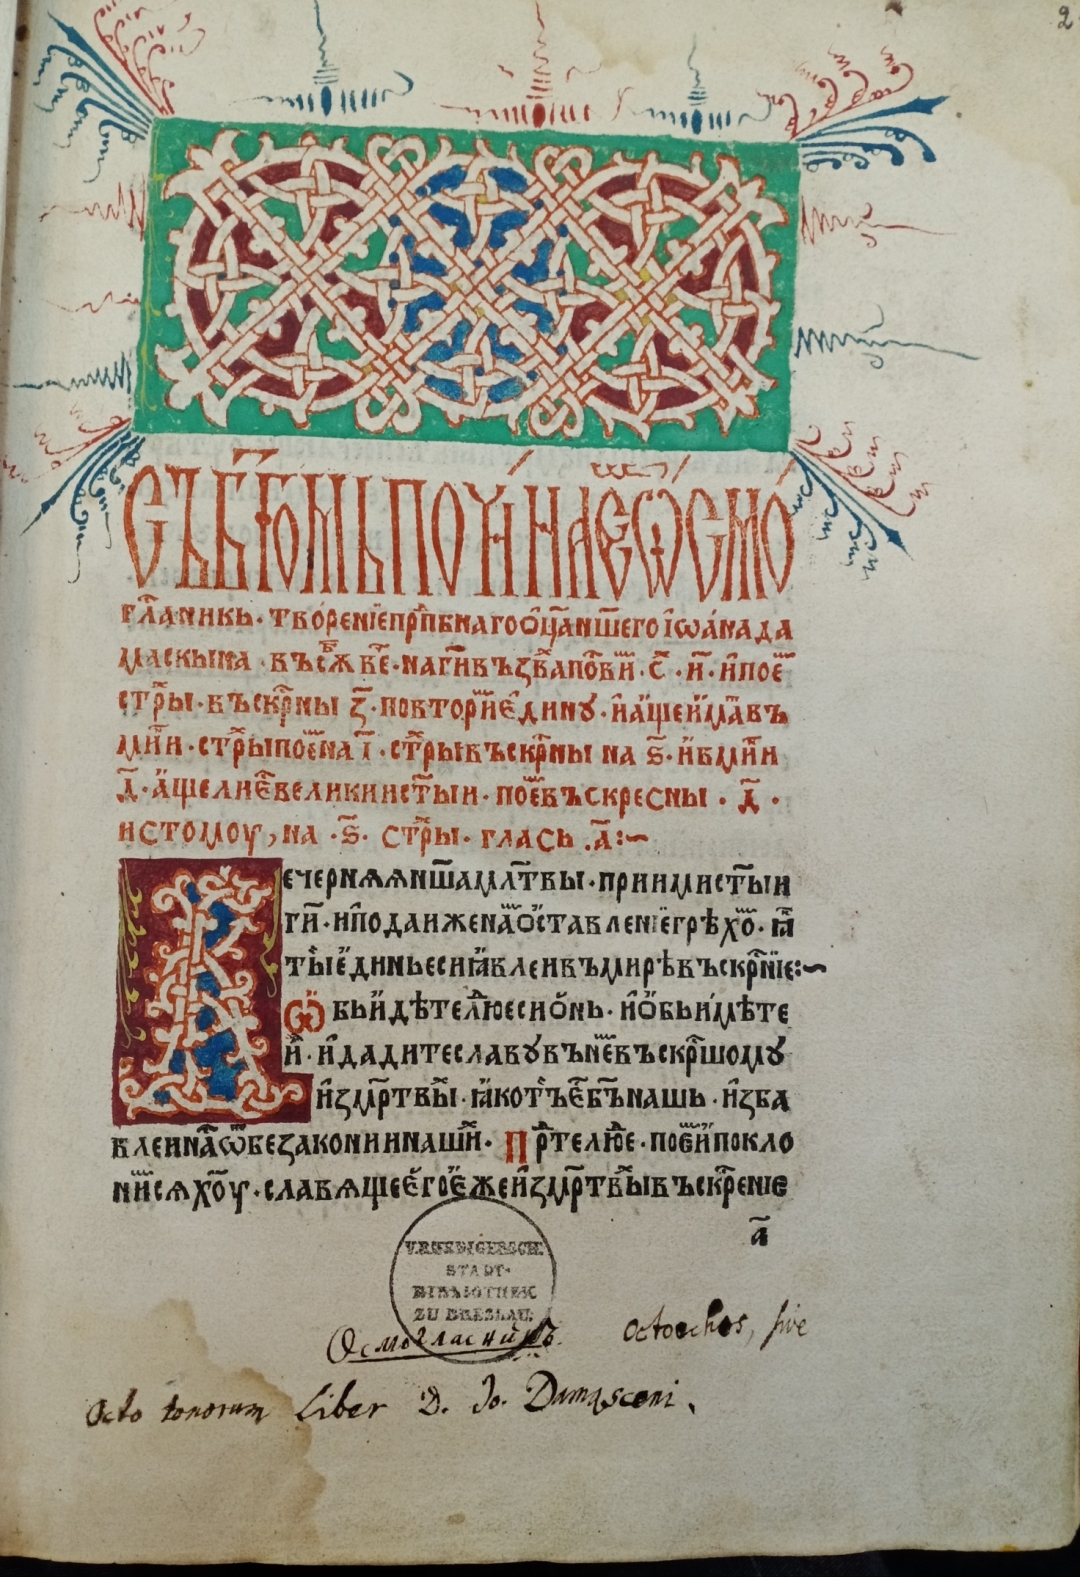 2
Съ б҃гомь починаемъ осмо
гла́сникь. творе́нїе прпⷣбнаго ѿц҃а нш҃его і҆ѡа́на да
маскына. въ сѫ҃ ве҃. на гі҃ въ́ꙁва поⷭ҇тавиⷨ. с҃. и҃. и҆ поеⷨ
стрⷯы. въскрⷭ҇ны ꙁ҃. повториⷨ є҆динꙋ. и҆ а҆ще и҆маⷨ въ
мини. стрⷯы поеⷨ на і҃. стрⷯы въскрⷭ҇ны на ѕ҃. и҆ в мини
д҃. а҆ще ли єⷭ҇ великии ст҃ыи. поеⷨ въскресны. д҃.
и стомоу, на. ѕ҃. стрⷯы. глась. а҃:~
Вечерняѧ нш҃а млт҃вы. приими ст҃ыи
ги҃. и҆ подаи же наⷨ о҆ставленїе грѣхоⷨ. ꙗ҆ко
ты̀ є҆динь еси ꙗ҆влеи въ мирѣ въскрⷭ҇нїе:~
Ѡ҆быи҆дѣте лю́їе сио҆нь. и҆ о҆быимѣте
и҆. и҆ дадите славꙋ въ неⷨ въскрⷭ҇шомꙋ
и҆ꙁ мрт҃выⷯ. ꙗ҆ко тъ̀ єⷭ҇ б҃ъ нашь. и҆ꙁба
влеи наⷭ҇ ѿ беꙁаконии нашиⷯ. Прⷣте лю́їе. поеⷨ и҆ покло
ниⷨсѧ хⷭ҇оу. славѧще є҆го є҆же и҆ꙁ мрт҃выⷯ въскрⷭ҇енїе
а҃
V. RHEDIGERSCHE
STADT-
BIBLIOTHEK
ZU BRESLAU.
Осмогласникъ. Octoechos, sive
Octo tonorum Liber D. Jo. Damasceni.